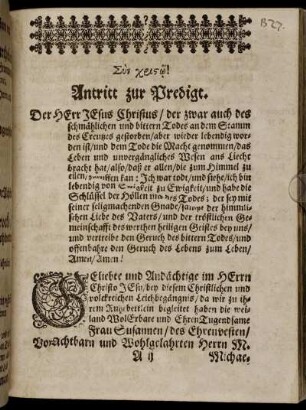 B 27.
Σὺν χριστῷ!
Antritt zur Predigt.
Der HErr JEsus Christus / der zwar auch des
schmählichen und bittern Todes an dem Stamm
des Creutzes gestorben / aber wieder lebendig wor-
den ist / und dem Tode die Macht genommen / das
Leben und unvergängliches Wesen ans Liecht
bracht hat / also / daß er allen / die zum Himmel zu
eilen, kan: Ich war todt / und siehe / ich bin
lebendig von Ewigkeit zu Ewigkeit / und habe die
Schlüssel der Höllen und des Todes; der sey mit
seiner seligmachenden Gnade / sampt der himmli-
schen Liebe des Vaters / und der tröstlichen Ge-
meinschafft des werthen heiligen Geistes bey uns /
und vertreibe den Geruch des bittern Todes / und
offenbahre den Geruch des Lebens zum Leben /
Amen / Amen!
GEliebte und Andächtige im HErrn
Christo JEsu / bey diesem Christlichen und
volckreichen Leichbegängnis / da wir zu ih-
rem Ruhebettlein begleitet haben die wei-
land WolErbare und EhrenTugendsame
Frau Susannen / des Ehrenvesten /
VorAchtbarn und Wohlgelahrten Herrn M.
A ij
Michae-